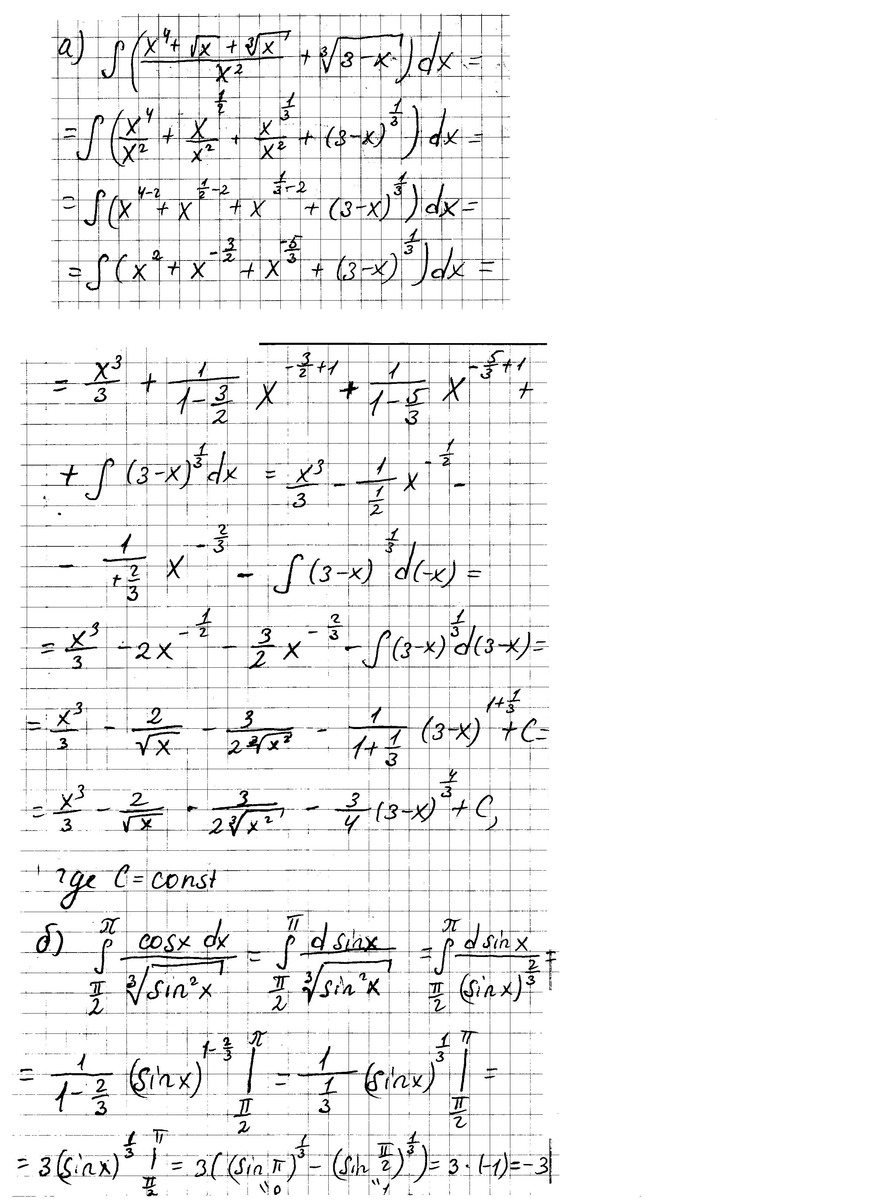 а) ∫ ( (x⁴ + √x + ∛x) / x² + ∛(3-x) ) dx =
= ∫ ( x⁴/x² + x^(1/2)/x² + x^(1/3)/x² + (3-x)^(1/3) ) dx =
= ∫ ( x^(4-2) + x^(1/2-2) + x^(1/3-2) + (3-x)^(1/3) ) dx =
= ∫ ( x² + x^(-3/2) + x^(-5/3) + (3-x)^(1/3) ) dx =
= x³/3 + 1/(1-3/2) x^(-3/2+1) + 1/(1-5/3) x^(-5/3+1) +
+ ∫ (3-x)^(1/3) dx = x³/3 - 1/(1/2) x^(-1/2) -
- 1/(+2/3) x^(-2/3) - ∫ (3-x)^(1/3) d(-x) =
= x³/3 - 2x^(-1/2) - 3/2 x^(-2/3) - ∫ (3-x)^(1/3) d(3-x) =
= x³/3 - 2/√x - 3/(2∛x²) - 1/(1+1/3) (3-x)^(1+1/3) + C =
= x³/3 - 2/√x - 3/(2∛x²) - 3/4 (3-x)^(4/3) + C,
где C = const
б) ∫_(π/2)^π cosx dx / ∛(sin²x) = ∫_(π/2)^π d sinx / ∛(sin²x) = ∫_(π/2)^π d sinx / (sinx)^(2/3) =
= 1/(1-2/3) (sinx)^(1-2/3) |_(π/2)^π = 1/(1/3) (sinx)^(1/3) |_(π/2)^π =
= 3(sinx)^(1/3) |_(π/2)^π = 3((sin π)^(1/3) - (sin π/2)^(1/3)) = 3·(-1) = -3
"0 "1